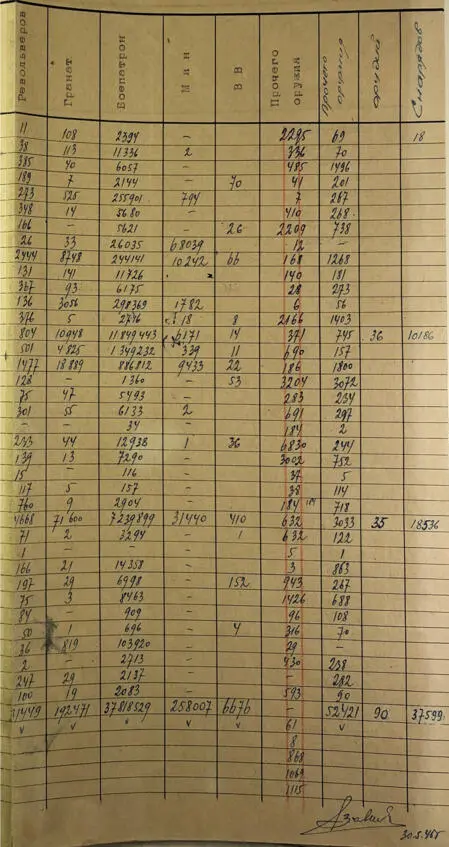 Револьверов Гранат Боепатрон Мин ВВ Прочего оружия
11 108 2394 – 2295 69 18
38 113 11336 2 336 70
385 40 6057 – 485 1496
189 7 2144 – 70 41 201
273 525 255901 794 7 267
348 14 5680 – 410 268
166 – 5621 – 26 2209 738
26 33 26035 68039 12 –
2444 8748 244141 10242 66 168 1268
131 141 11726 140 181
367 93 6175 – 28 273
136 3056 298369 1782 6 56
376 5 2746 18 8 2166 1403
804 10948 11849443 6171 14 371 745 36 10186
501 4825 1349232 339 11 690 157
1477 18889 886812 9433 22 186 1800
128 – 1360 – 53 3204 3072
75 47 5493 – 283 234
301 55 6133 2 691 297
– – 34 – 184 2
233 44 12938 1 36 6830 244
139 13 7290 – 3002 752
15 – 116 – 37 5
117 5 157 – 38 114
760 9 2904 – 184 718
4668 71600 7239899 31440 410 632 3033 35 18536
71 2 3294 – 1 632 122
1 – – – 5 1
166 21 14358 – 3 863
197 29 6998 – 152 943 267
75 3 8463 – 1426 688
84 – 909 – 96 108
50 – 696 – 4 316 70
36 819 103920 – 29 –
2 – 2713 – 430 238
247 29 2137 – – 282
100 19 2083 – 593 90
31449 192471 37818529 258007 6676 – 52421 90 37599
61
8
868
1069
1115
30.5.46г